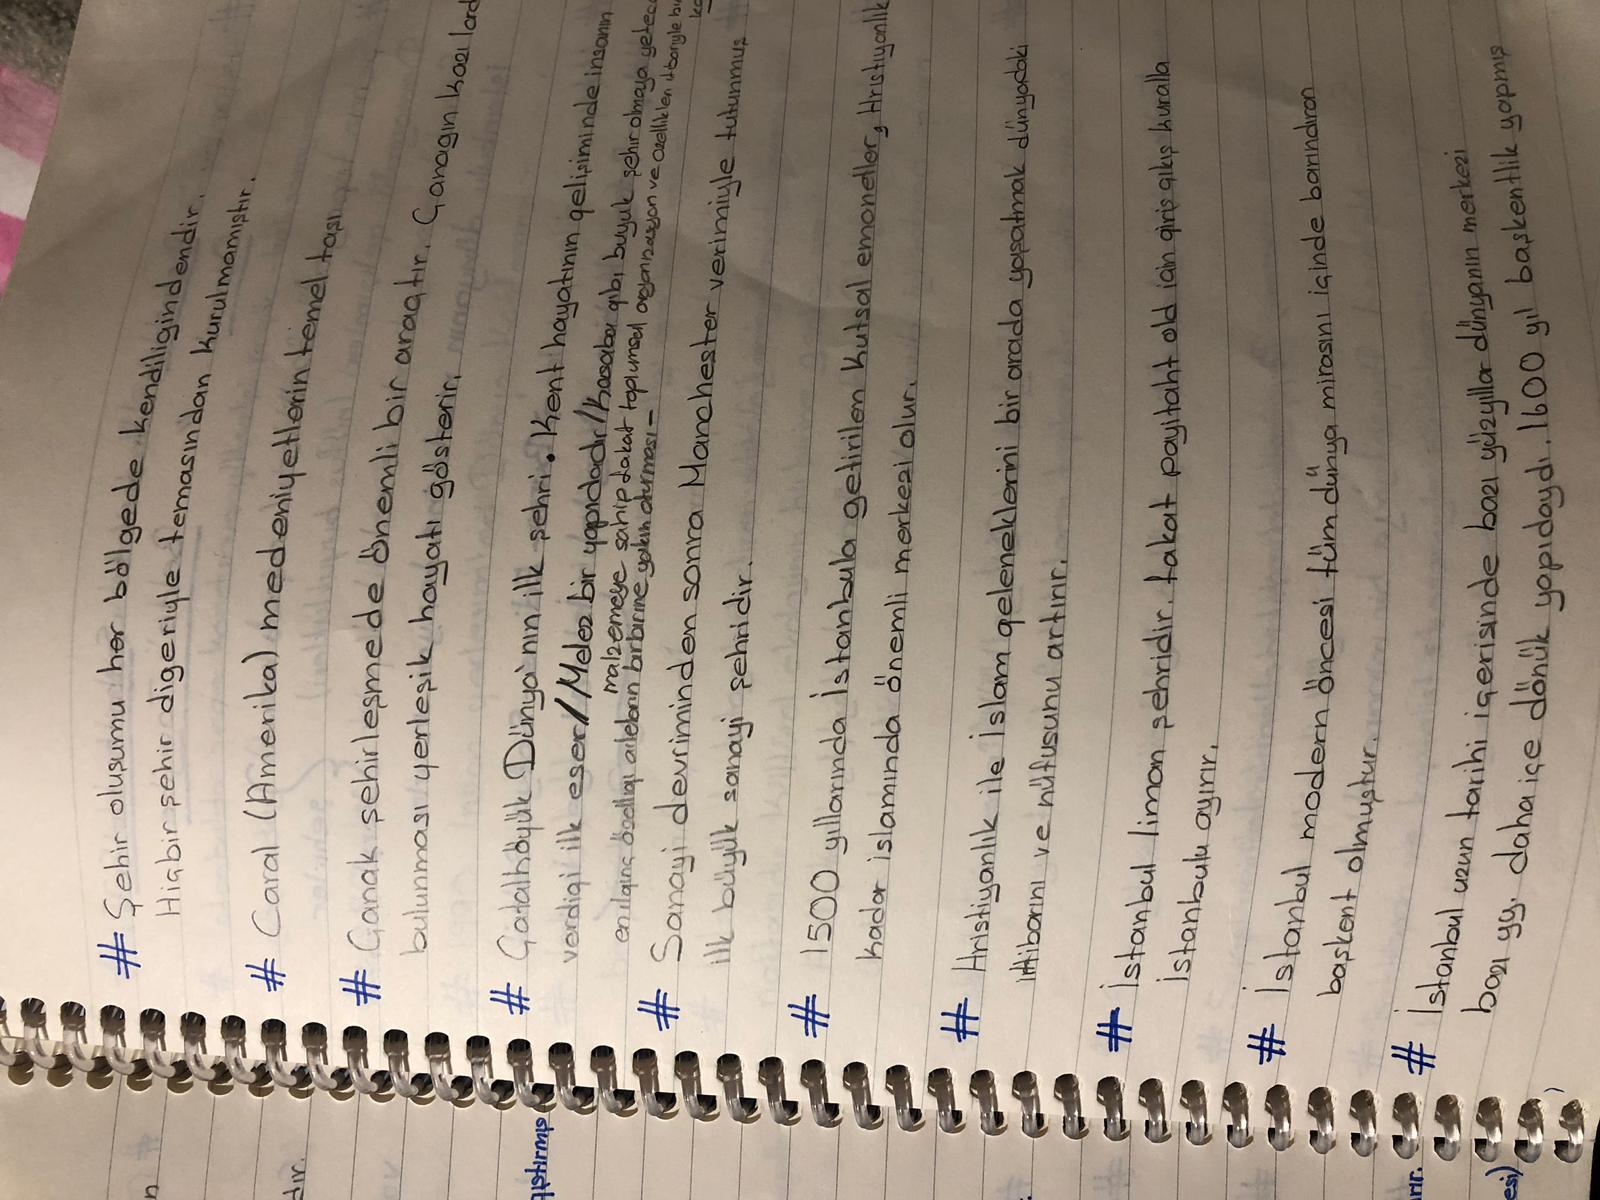 # Şehir oluşumu her bölgede kendiligindendir.
Hiçbir şehir digeriyle temasından kurulmamıştır.
# Caral (Amerika) medeniyetlerin temel taşı
# Çanak şehirleşmede önemli bir araçtır. Çanagın kazılard
bulunması yerleşik hayatı gösterir.
# Çatalhöyük Dünya'nın ilk şehri. Kent hayatının gelişiminde insanın
verdigi ilk eser / Melez bir yapıdadır / Kasaba gibi büyük şehir olmaya yetec
malzemeye sahip fakat toplumsal organizasyon ve özellikleri itibariyle bi
en ilginç özelligi ailelerin birbirine yakın oturması –
# Sanayi devriminden sonra Manchester verimiyle tutunmuş
ilk büyük sanayi şehridir.
# 1500 yıllarında İstanbula getirilen kutsal emanetler, Hristiyanlık
kadar islamında önemli merkezi olur.
# Hristiyanlık ile İslam geleneklerini bir arada yaşatmak dünyadaki
ittibarını ve nüfusunu artırır.
# İstanbul liman şehridir. fakat payitaht old için giriş çıkış kuralla
İstanbulu ayırır.
# İstanbul modern öncesi tüm dünya mirasını içinde barındıran
başkent olmuştur.
# İstanbul uzun tarihi içerisinde bazı yüzyıllar dünyanın merkezi
bazı yy. daha içe dönük yapıdaydı. 1600 yıl başkentlik yapmış
n
dır.
ıştırmış
rır.
esi)